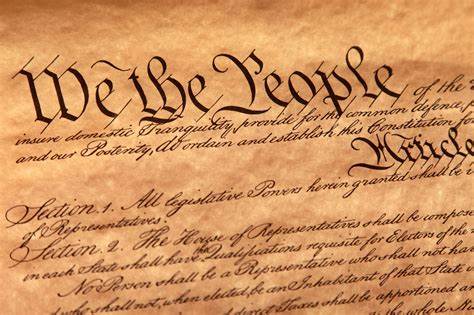 We the People of the
insure domestic Tranquility, provide for the common defence,
and our Posterity, do ordain and establish this Constitution fo
Article
Section. 1. All legislative Powers herein granted shall be
of Representatives.
Section. 2. The House of Representatives shall be compos
in each State shall have Qualifications requisite for Electors of the
No Person shall be a Representative who shall not ha
who shall not, when elected, be an Inhabitant of that State
and direct Taxes shall be apportioned
the whole